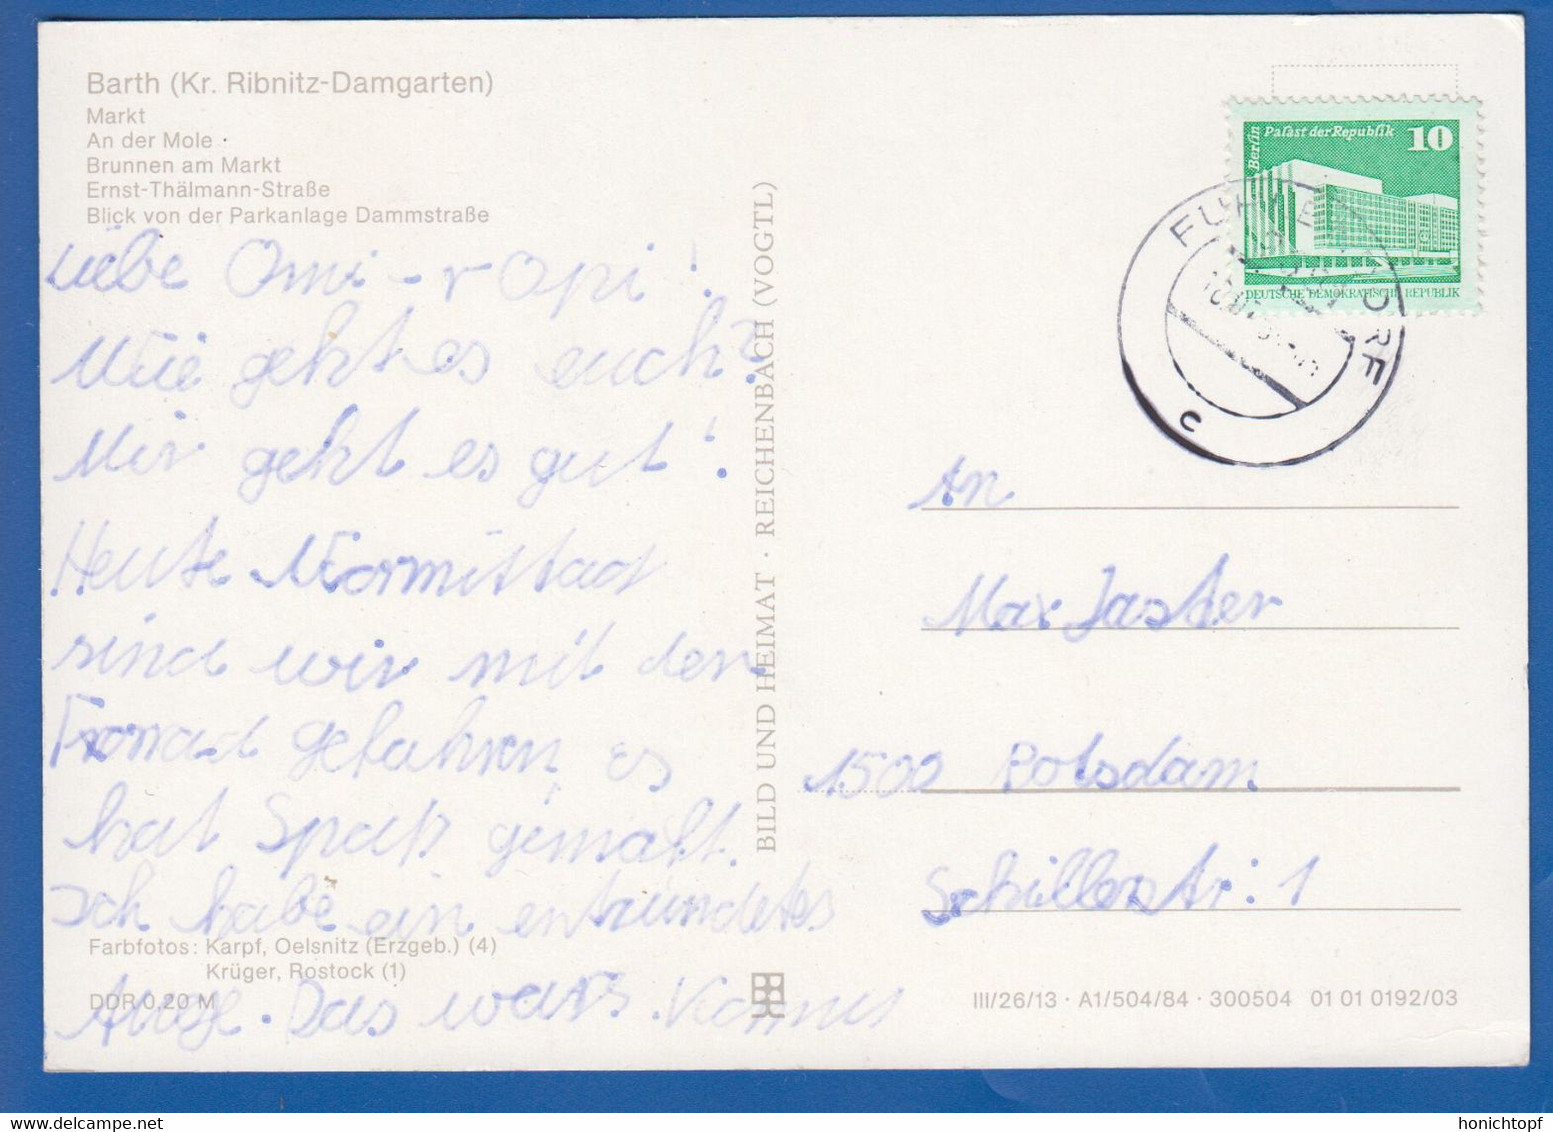 Barth (Kr. Ribnitz-Damgarten)
Markt
An der Mole
Brunnen am Markt
Ernst-Thälmann-Straße
Blick von der Parkanlage Dammstraße
Liebe Omi - + Opi!
Wie geht es euch?
Mir geht es gut!
Heute Vormittag
sind wir mit den
gefahren, es
hat Spaß gemacht.
Ich habe ein entzündetes
Auge. Das wars.
Farbfotos: Karpf, Oelsnitz (Erzgeb.) (4)
Krüger, Rostock (1)
DDR 0,20 M
BILD UND HEIMAT · REICHENBACH (VOGTL)
Berlin
Palast der Republik
10
DEUTSCHE DEMOKRATISCHE REPUBLIK
c
An
Max Jaster
1500 Potsdam
Schillerstr: 1
III/26/13 · A1/504/84 · 300504 01 01 0192/03
honichtopf